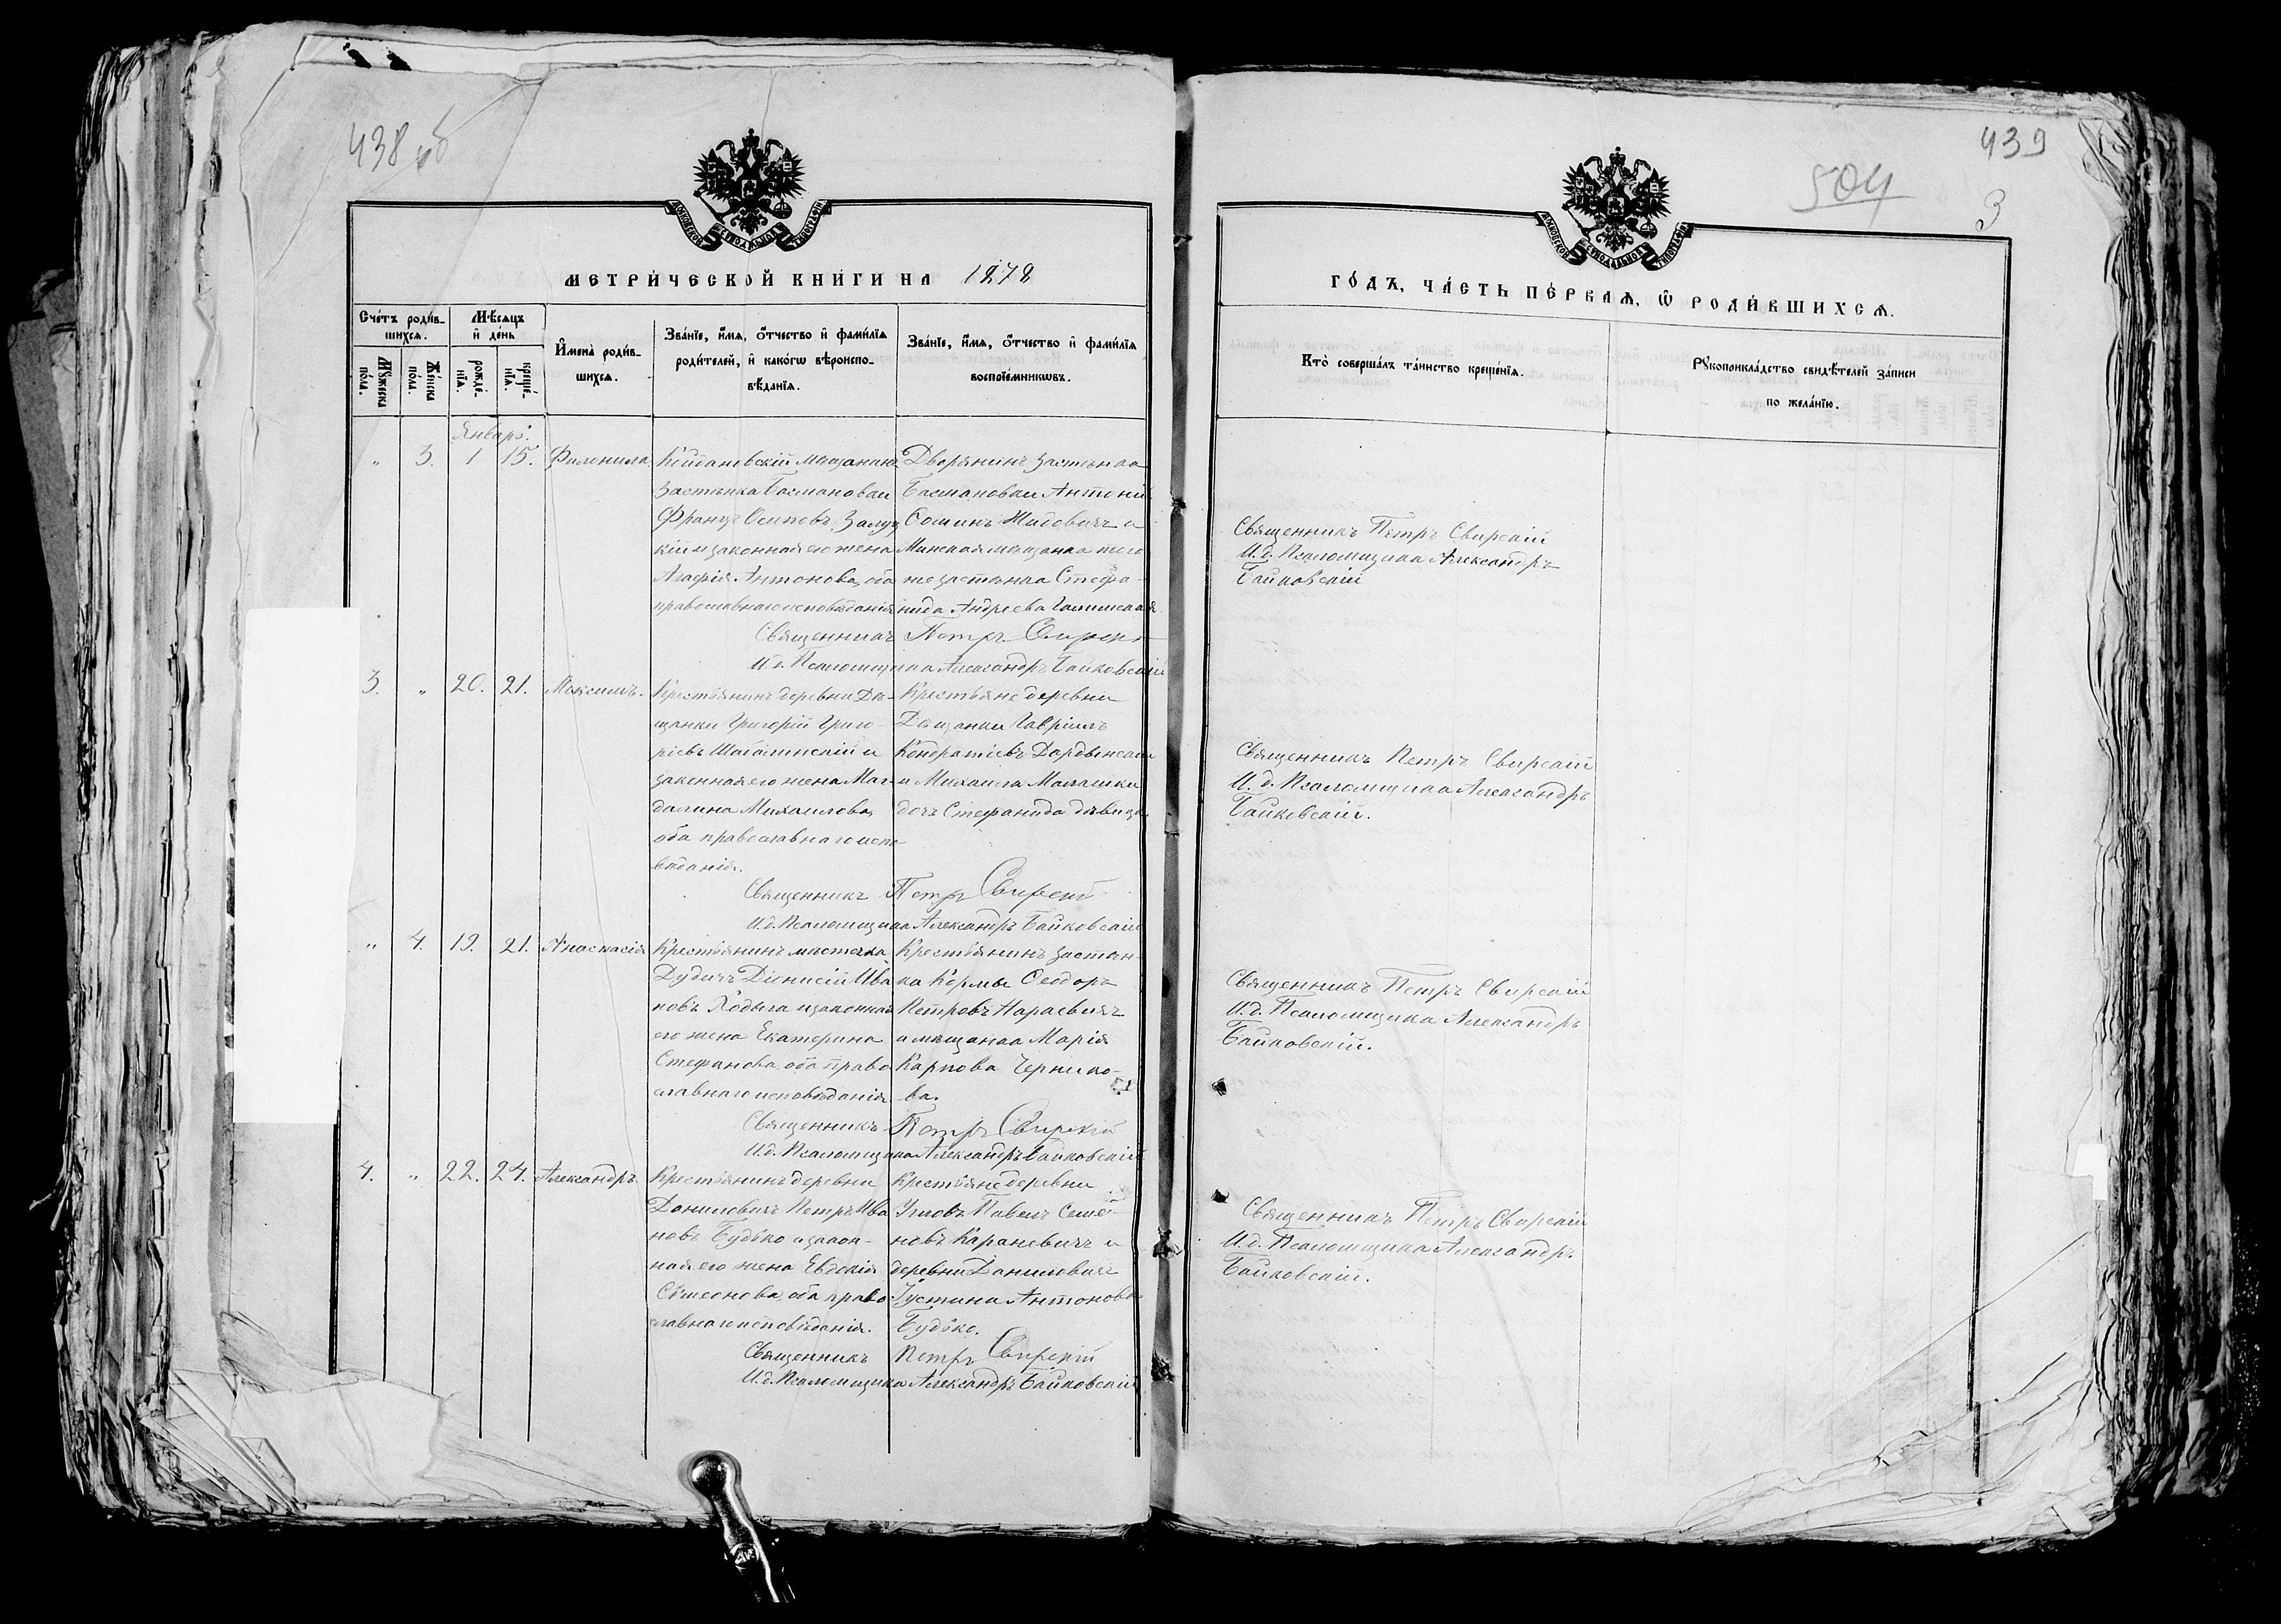 438 об
МОСКОВСКОЙ СѴНОДАЛЬНОЙ ТИПОГРАФІИ
МЕТРИ́ЧЕСКОЙ КНИ́ГИ НА 1878
Сче́тъ роди́в-
шихсѧ.
Мꙋ́жеска
по́ла.
Же́нска
по́ла.
Мѣ́сѧцъ
и҆ де́нь
рожде́-
нїѧ.
креще́-
нїѧ.
И҆мена̀ роди́в-
шихсѧ.
Зва́нїе, и҆́мѧ, ѻ҆́тчество и҆ фами́лїѧ
роди́телей, и҆ како́гѡ вѣроиспо-
вѣ́данїѧ.
Зва́нїе, и҆́мѧ, ѻ҆́тчество и҆ фами́лїѧ
воспрїе́мникѡвъ.
Январь.
" 3. 1 15. Фила
Койдановскій мѣщанинъ
застѣнка Басмановки
Францъ Осиповъ Залуц
кій и законная его жена
Агафія Антонова, оба
православнаго исповѣданія
Дворянинъ застѣнка
Басмановки Антоній
Минская мѣщанка того
же застѣнка Стефа-
нида Андреева
Священникъ Петръ Свирскій
И.д. Псаломщика Александръ Байковскій
3. " 20. 21. Максимъ.
Крестьянинъ деревни Да-
щанки Григорій Григо-
рьевъ и
законная его жена Маг-
далина Михаилова,
оба православнаго испо-
вѣданія.
Крестьяне деревни
Дащанки Гавріилъ
Кондратьевъ
и Михаила Малашки
дочь Стефанида дѣвица
Священникъ Петръ Свирскій
И.д. Псаломщика Александръ Байковскій
" 4. 19. 21. Анастасія
Крестьянинъ мѣстечка
Дудичъ Діонисій Ива
новъ Ходыга и законная
его жена Екатерина
Стефанова, оба право
славнаго исповѣданія
Крестьянинъ застѣн-
ка Кормы Феодоръ
Петровъ Нарасевичъ
и мѣщанка Марія
Карпова Чернико-
ва.
Священникъ Петръ Свирскій
И.д. Псаломщика Александръ Байковскій
4. " 22. 24. Александръ
Крестьянинъ деревни
Даниловичъ Петръ Ива
новъ Будько и закон-
ная его жена Евдокія
Сѵмеонова, оба право
славнаго исповѣданія.
Крестьяне деревни
Павелъ Семе-
новъ Караневичъ и
деревни Даниловичъ
Іустина Антонова
Будько.
Священникъ Петръ Свирскій
И.д. Псаломщика Александръ Байковскій
439
504
3
МОСКОВСКОЙ СѴНОДАЛЬНОЙ ТИПОГРАФІИ
ГО́ДЪ, ЧА́СТЬ ПЕ́РВАѦ, Ѡ҆ РОДИ́ВШИХСѦ.
Кто̀ соверша́лъ та́инство креще́нїѧ.
Рꙋкоприкла́дство свидѣ́телей за́писи
по жела́нїю.
Священникъ Петръ Свирскій
И.д. Псаломщика Александръ
Байковскій
Священникъ Петръ Свирскій
И.д. Псаломщика Александръ
Байковскій.
Священникъ Петръ Свирскій
И.д. Псаломщика Александръ
Байковскій.
Священникъ Петръ Свирскій
И.д. Псаломщика Александръ
Байковскій.